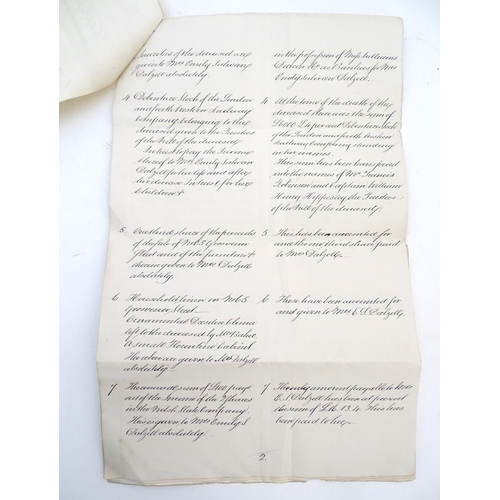 of the deceased are
given to Mrs Emily Sulivan
Dalzell absolutely.
in the possession of Messrs Williams
Deacon & Co as Bankers for Mrs
Emily Sulivan Dalzell.
4 Debenture Stock of the London
and North Western Railway
Company belonging to the
deceased given to the Trustees
of the Will of the deceased
In trust to pay the Income
thereof to Mrs Emily Sulivan
Dalzell for her life and after
her decease In trust for her
Children &
4 At the time of the death of the
deceased there was the sum of
per cent Debenture Stock
of the London and North Western
Railway Company standing
in her name.
This sum has been transferred
into the names of Mr Francis
Robinson and Captain William
Henry the Trustees
of the Will of the deceased.
5 One third share of the proceeds
of the sale of No 5 Grosvenor
Street and of the furniture &
therein given to Mrs Dalzell
absolutely.
5 This has been accounted for
and the one third share paid
to Mrs Dalzell.
6 Household linen in No 5
Grosvenor Street
Ornamental Dresden China
left to the deceased by
a small Florentine Cabinet
The above are given to Mrs Dalzell
absolutely.
6 These have been accounted for
and given to Mrs E S Dalzell.
7 The annual sum of pay
out of the Income of the Shares
in the Welsh Slate Company.
This is given to Mrs Emily S
Dalzell absolutely.
7 The only amount payable to Mrs
E. S. Dalzell has been at present
the sum of This has
been paid to her.
2.